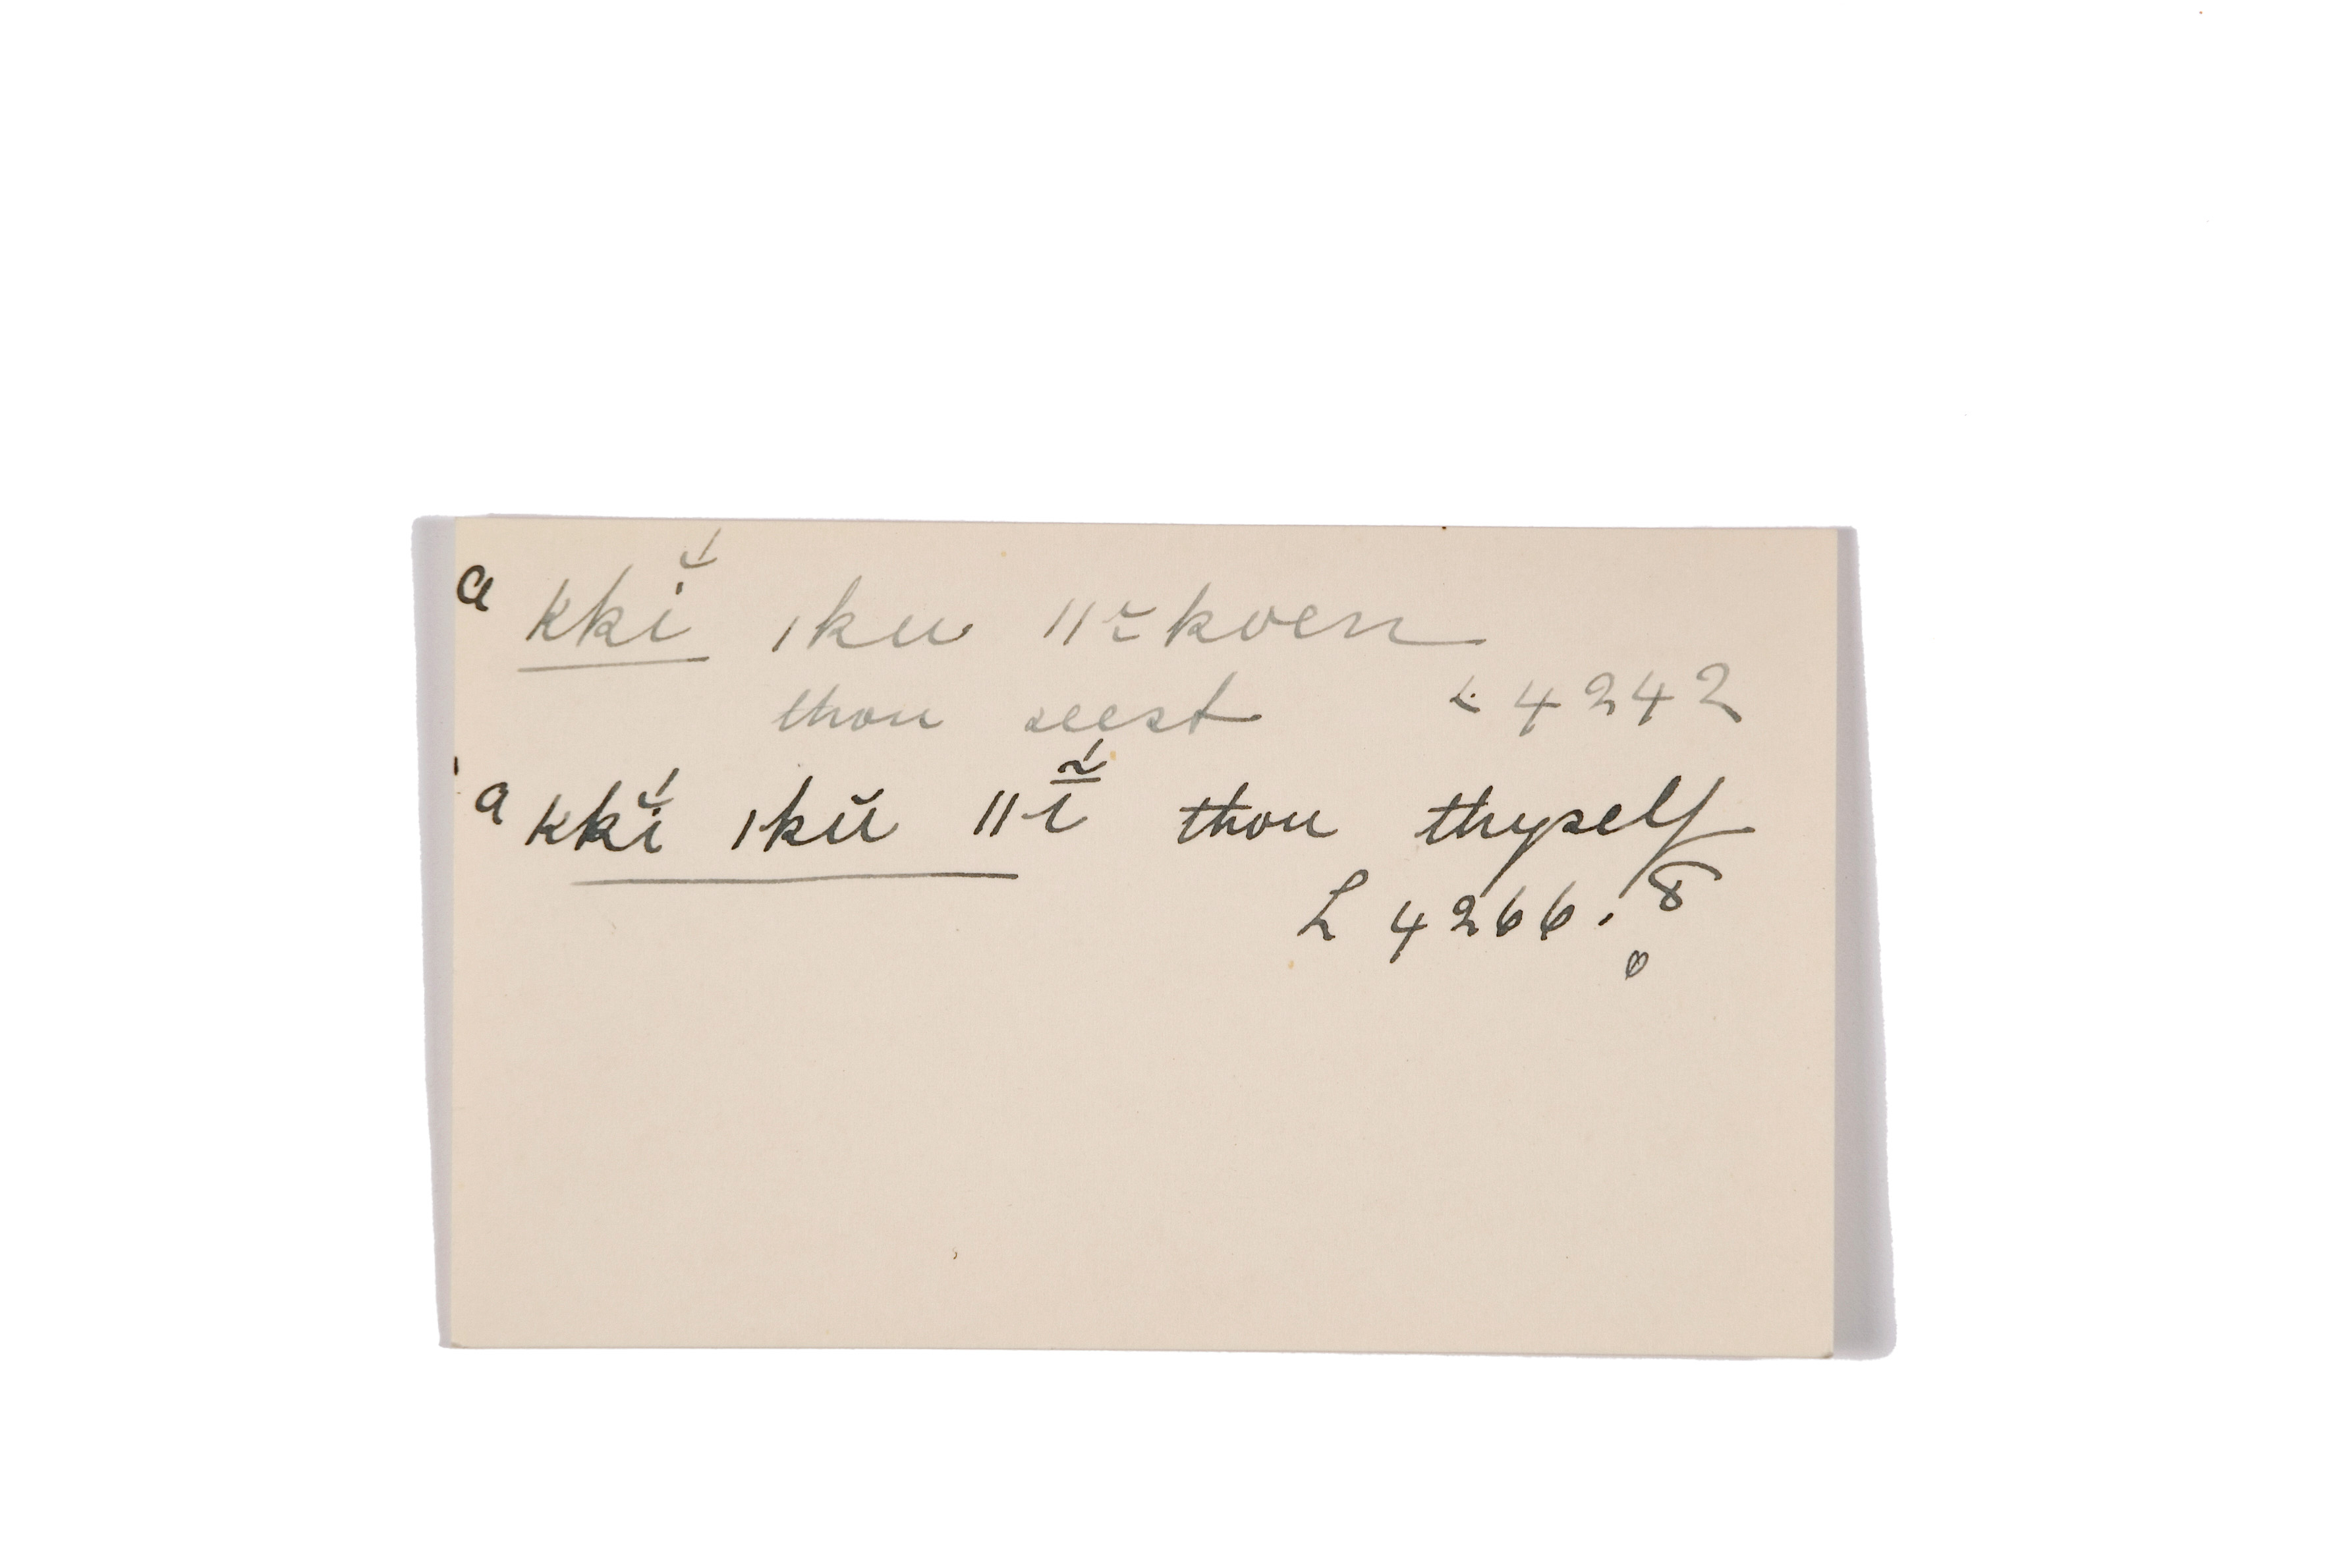 a kkĭ́ ıku ǁ̃koen
thou seest L 4242
a kkĭ́ ıkŭ ǁĩ̱́ thou thyself
L 4266. 8